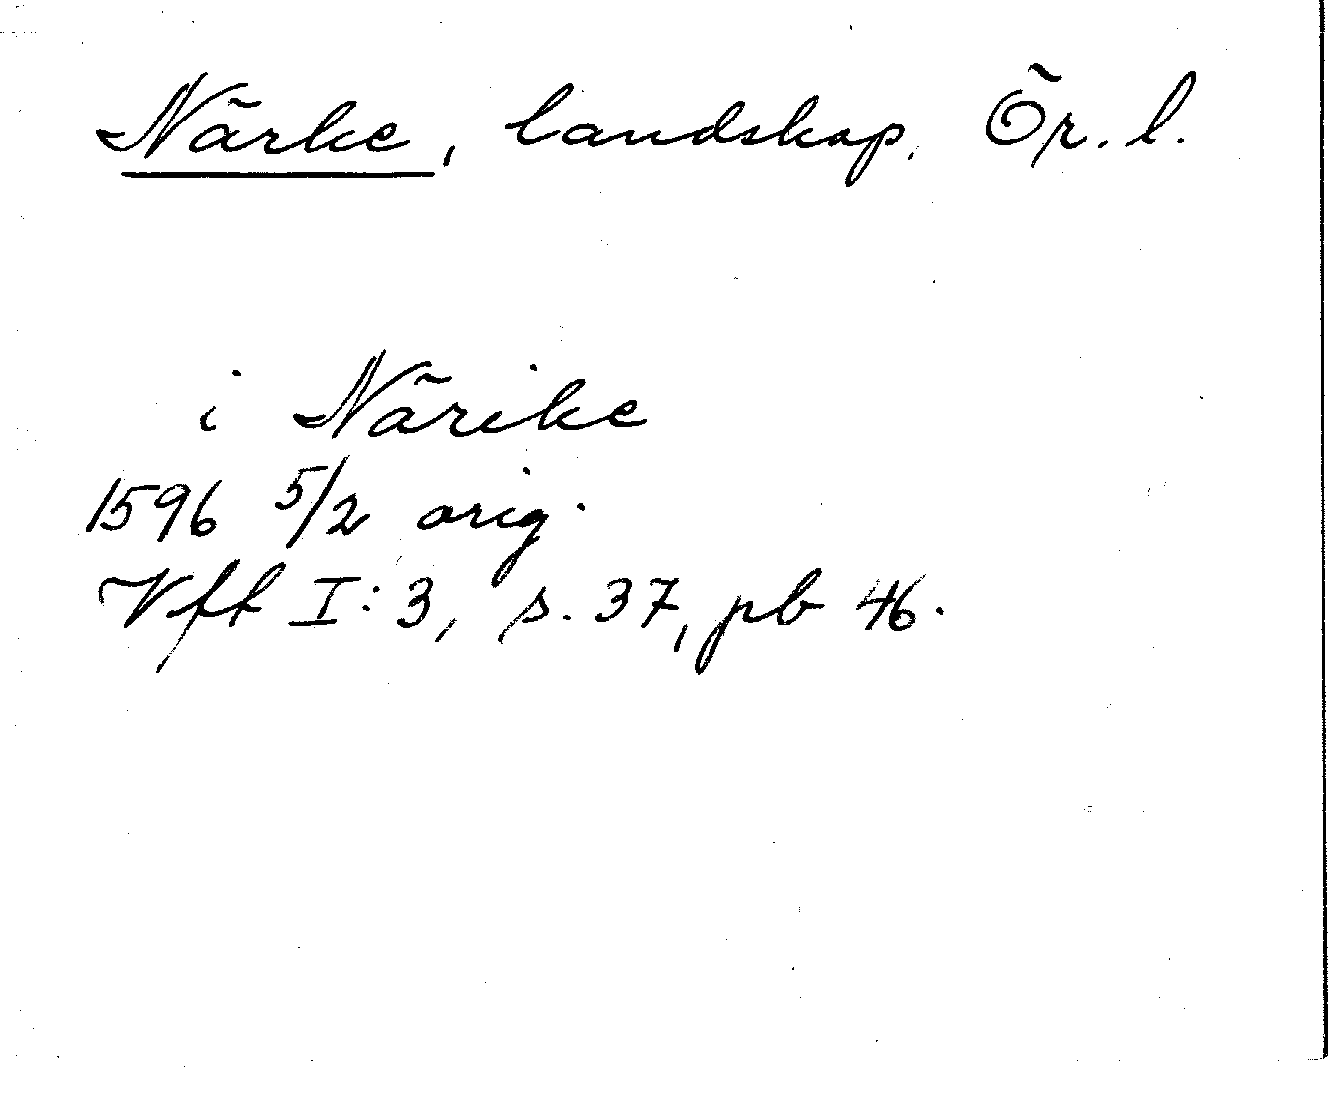 Närke, landskap, Ör. l.
i Närike
1596 5/2 orig.
Vft I:3, s. 37, pb 46.